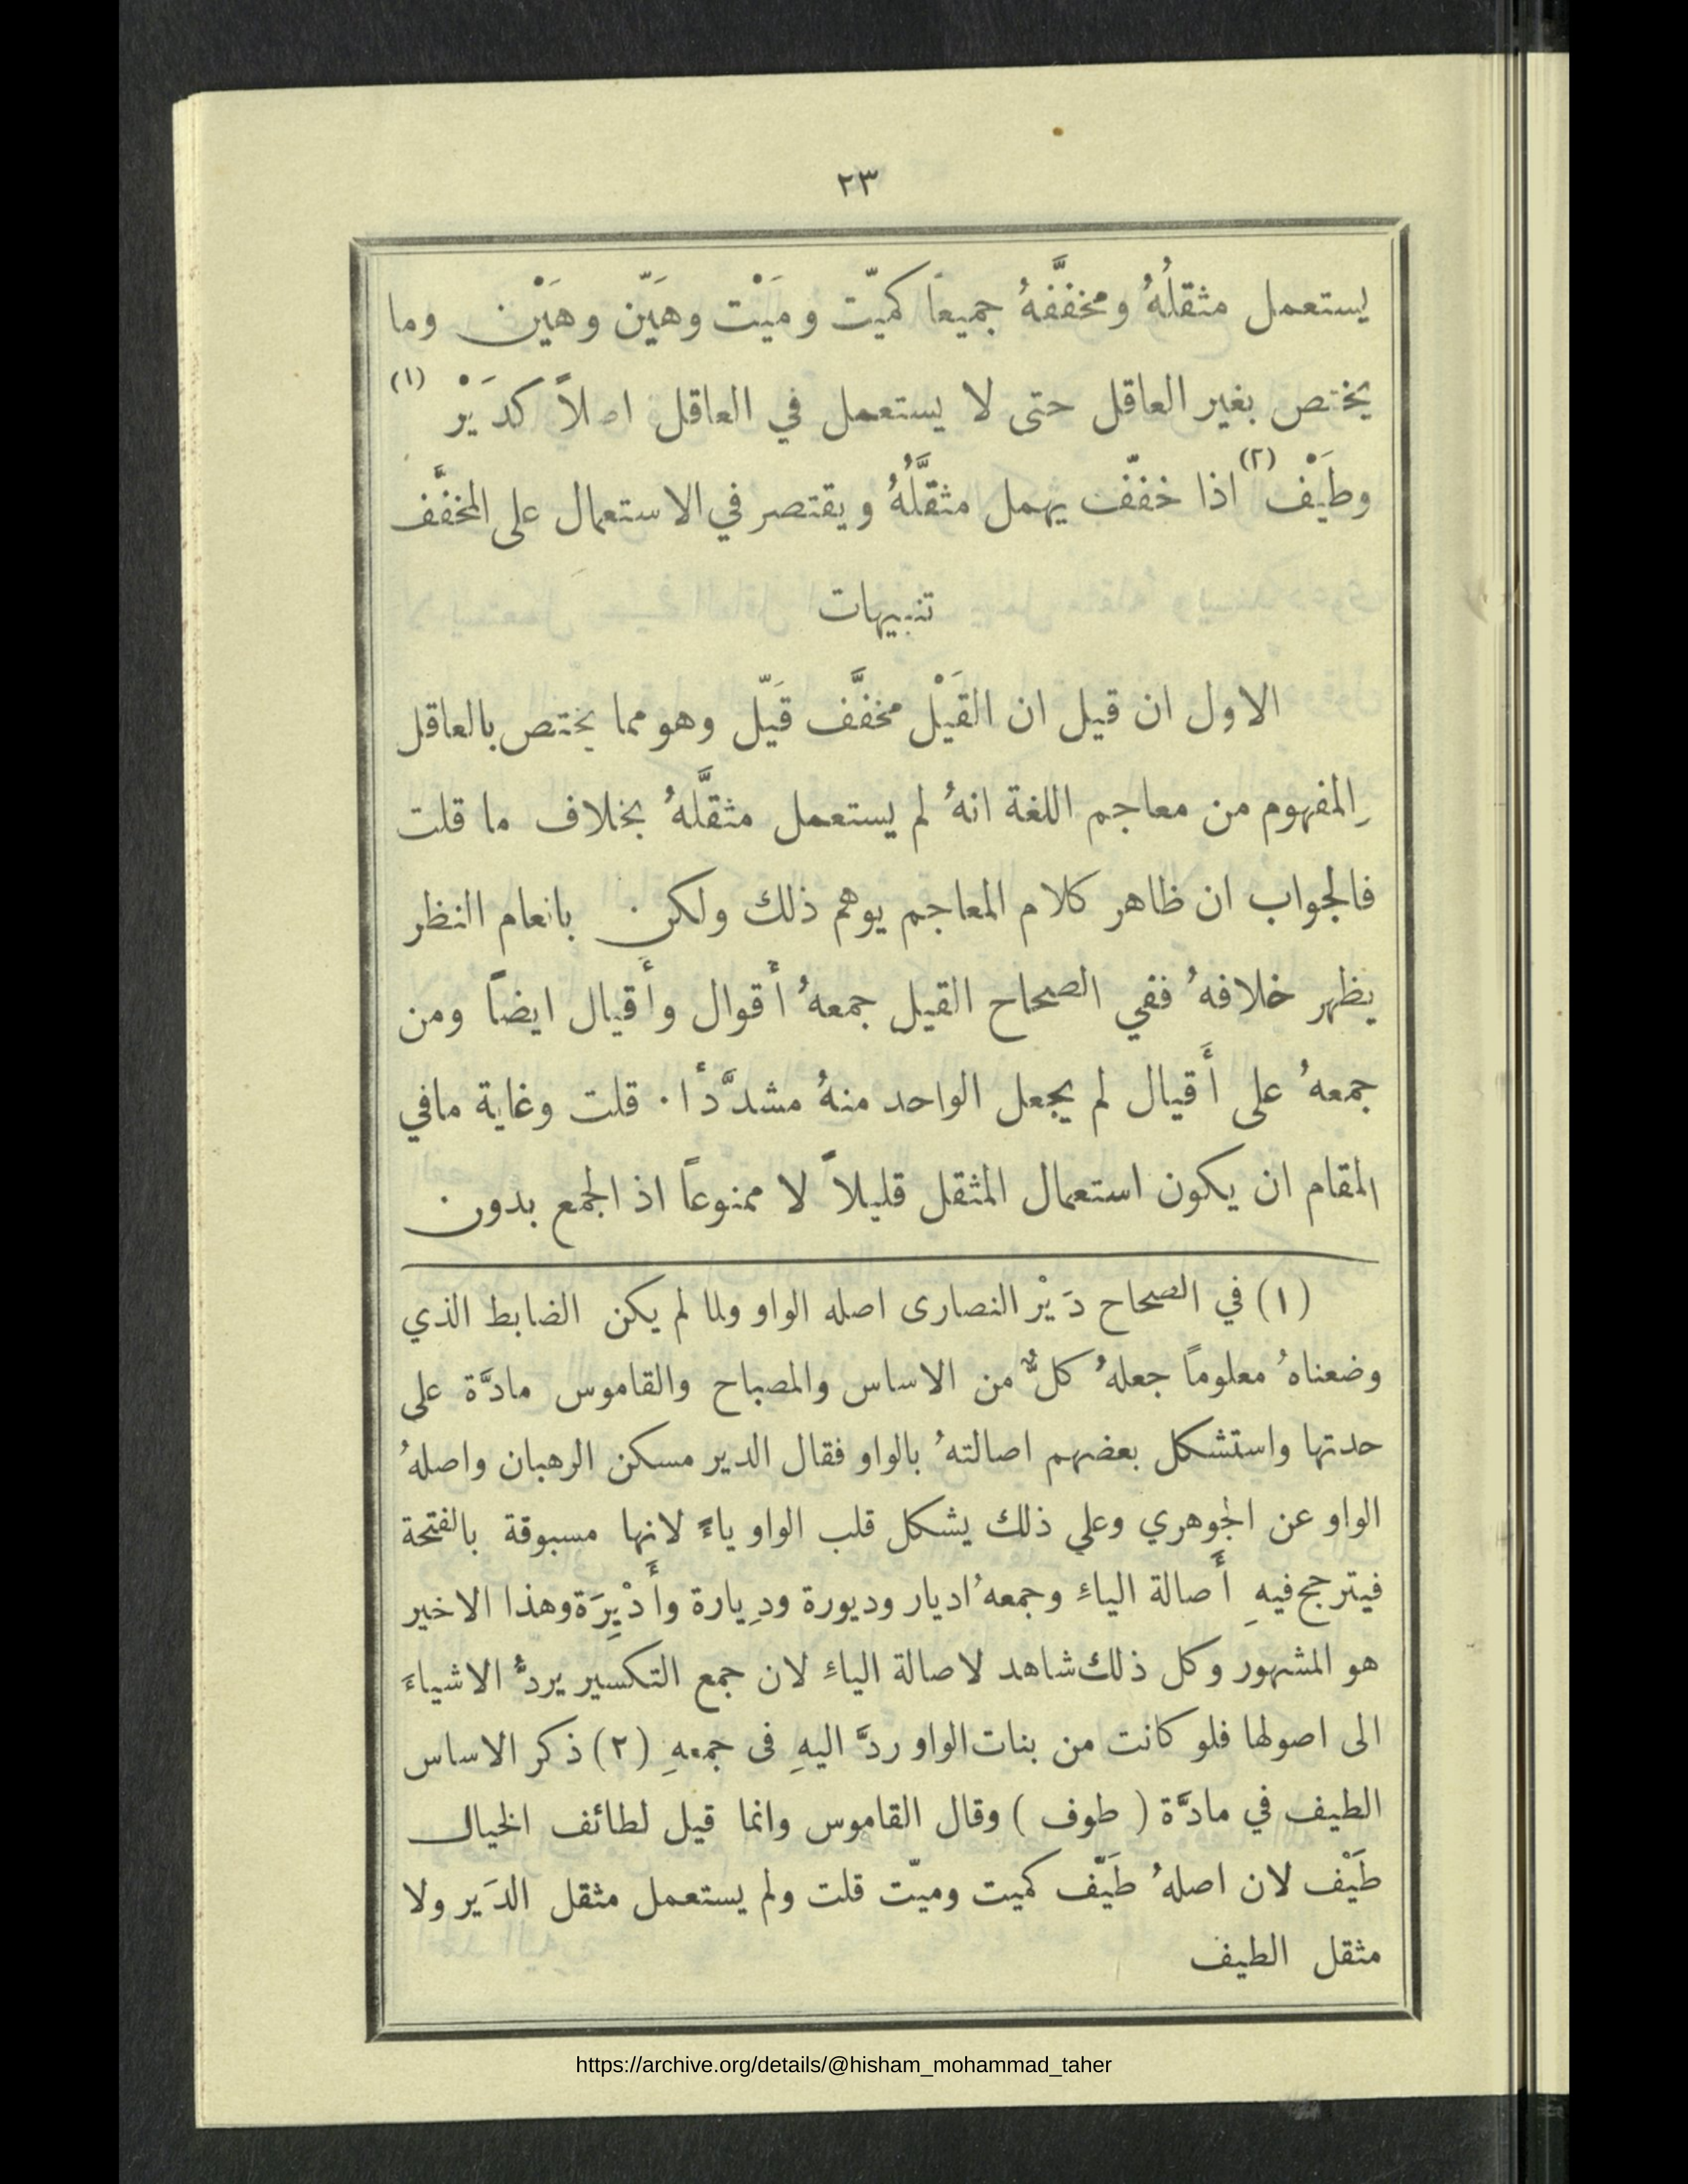 ٢٣
يستعمل مثقلُهُ ومخفَّفهُ جميعاً كميّت ومَيْت وهَيّن وهَيْن وما
يختص بغير العاقل حتى لا يستعمل في العاقل اصلاً كدَيْر (١)
وطَيْف (٢) اذا خفّف يهمل مثقَّلُهُ ويقتصر في الاستعمال على المخفَّف
تنبيهات
الاول ان قيل ان القَيْل مخفَّف قَيّل وهو مما يختص بالعاقل
والمفهوم من معاجم اللغة انهُ لم يستعمل مثقَّلهُ بخلاف ما قلت
فالجواب ان ظاهر كلام المعاجم يوهم ذلك ولكن بانعام النظر
يظهر خلافهُ ففي الصحاح القيل جمعهُ أَقوال وأَقيال ايضاً ومن
جمعهُ على أَقيال لم يجعل الواحد منهُ مشدَّدًا · قلت وغاية مافي
المقام ان يكون استعمال المثقل قليلاً لا ممنوعاً اذ الجمع بدون
(١) في الصحاح دَيْر النصارى اصله الواو ولما لم يكن الضابط الذي
وضعناهُ معلوماً جعلهُ كلٌّ من الاساس والمصباح والقاموس مادَّة على
حدتها واستشكل بعضهم اصالتهُ بالواو فقال الدير مسكن الرهبان واصلهُ
الواو عن الجوهري وعلي ذلك يشكل قلب الواو ياءً لانها مسبوقة بالفتحة
فيترجح فيهِ أَصالة الياءِ وجمعهُ اديار وديورة ودِيارة وأَدْيِرَة وهذا الاخير
هو المشهور وكل ذلك شاهد لاصالة الياءِ لان جمع التكسير يردُّ الاشياءَ
الى اصولها فلو كانت من بنات الواو ردَّ اليهِ فى جمعهِ (٢) ذكر الاساس
الطيف في مادَّة ( طوف ) وقال القاموس وانما قيل لطائف الخيال
طَيْف لان اصلهُ طَيّف كميت وميّت قلت ولم يستعمل مثقل الدَير ولا
مثقل الطيف
https://archive.org/details/@hisham_mohammad_taher